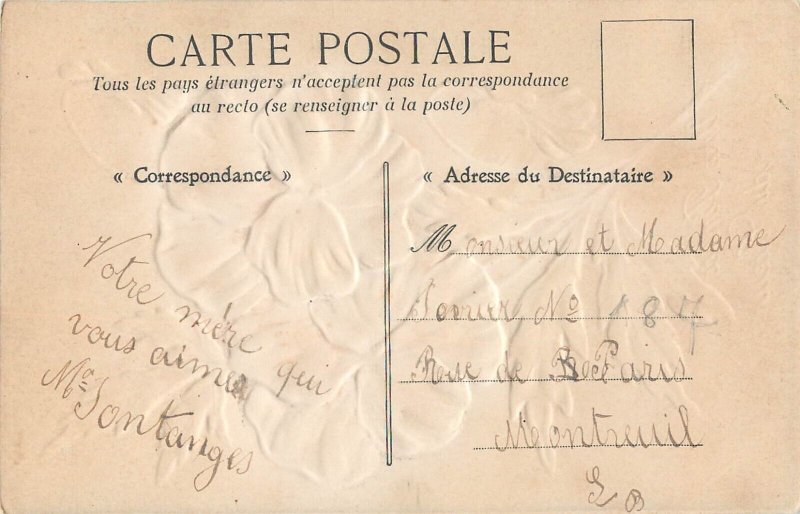 CARTE POSTALE
Tous les pays étrangers n'acceptent pas la correspondance
au recto (se renseigner à la poste)
« Correspondance »
Votre mère qui
vous aime
« Adresse du Destinataire »
Monsieur et Madame
No 187
Rue de Paris
Montreuil